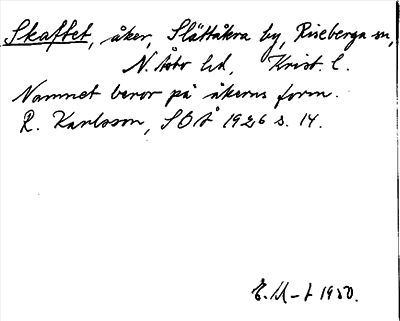 Skaftet, åker, Slättåkra by, Riseberga sn,
N. Åsbo hd, Krist. l.
Namnet beror på åkerns form.
R. Karlsson, SOÅ 1926 s. 14.
1950.